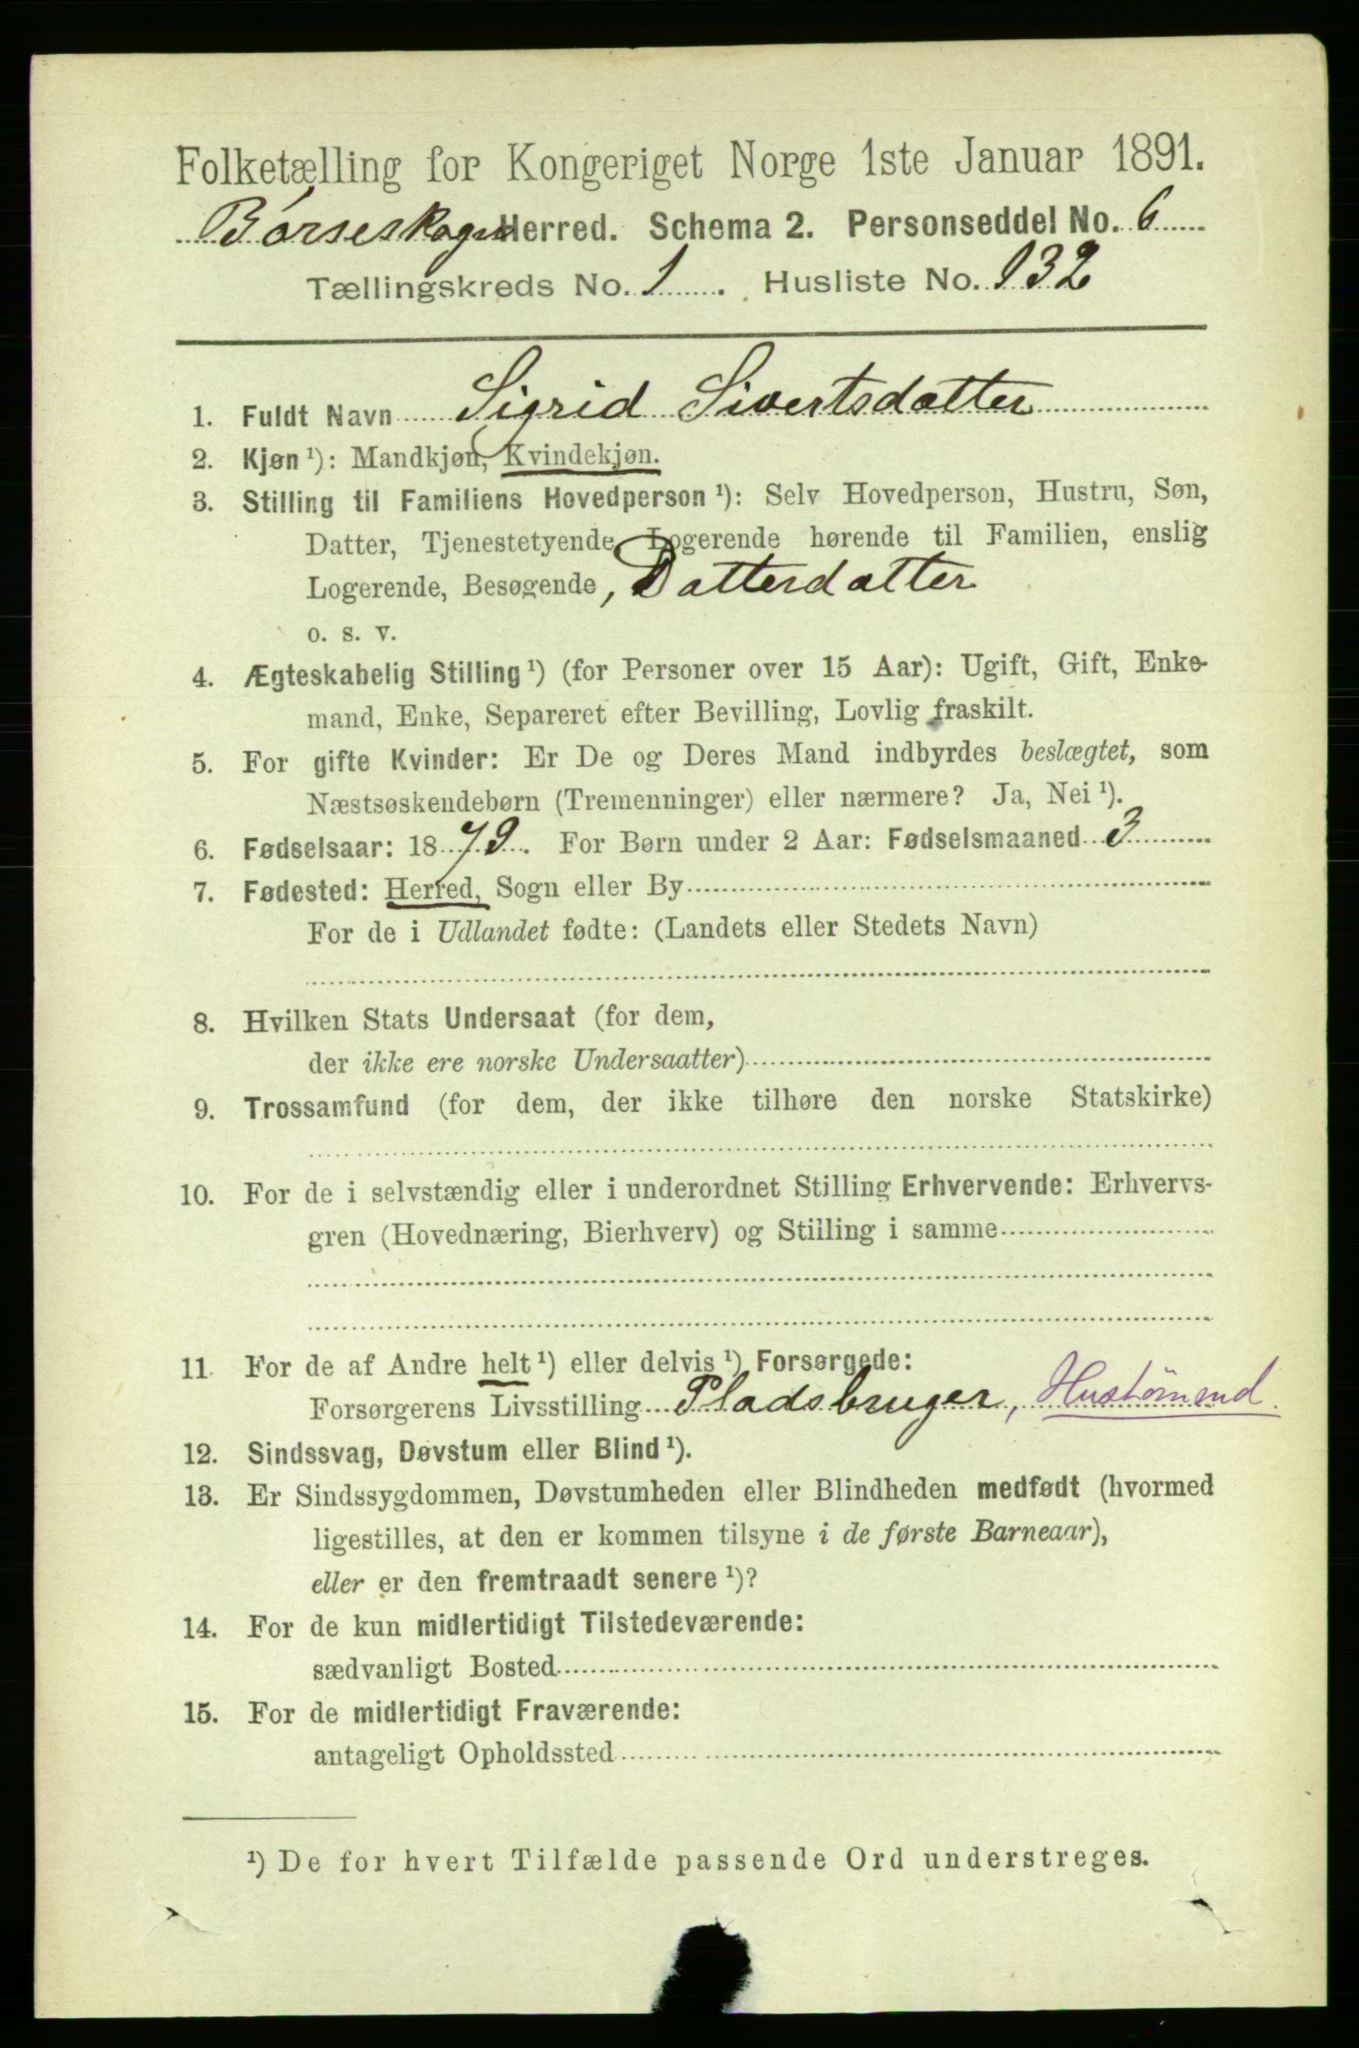 Folketælling for Kongeriget Norge 1ste Januar 1891.
Børseskogn Herred. Schema 2. Personseddel No. 6
Tællingskreds No. 1. Husliste No. 132
1. Fuldt Navn Sigrid Sivertsdatter
2. Kjøn ¹): Mandkjøn, Kvindekjøn.
3. Stilling til Familiens Hovedperson ¹): Selv Hovedperson, Hustru, Søn,
Datter, Tjenestetyende, Logerende hørende til Familien, enslig
Logerende, Besøgende, Datterdatter
o. s. v.
4. Ægteskabelig Stilling ¹) (for Personer over 15 Aar): Ugift, Gift, Enke-
mand, Enke, Separeret efter Bevilling, Lovlig fraskilt.
5. For gifte Kvinder: Er De og Deres Mand indbyrdes beslægtet, som
Næstsøskendebørn (Tremenninger) eller nærmere? Ja, Nei ¹).
6. Fødselsaar: 1879. For Børn under 2 Aar: Fødselsmaaned 3
7. Fødested: Herred, Sogn eller By
For de i Udlandet fødte: (Landets eller Stedets Navn)
8. Hvilken Stats Undersaat (for dem,
der ikke ere norske Undersaatter)
9. Trossamfund (for dem, der ikke tilhøre den norske Statskirke)
10. For de i selvstændig eller i underordnet Stilling Erhvervende: Erhvervs-
gren (Hovednæring, Bierhverv) og Stilling i samme
11. For de af Andre helt ¹) eller delvis ¹) Forsørgede:
Forsørgerens Livsstilling Pladsbruger, Hustømend.
12. Sindssvag, Døvstum eller Blind ¹).
13. Er Sindssygdommen, Døvstumheden eller Blindheden medfødt (hvormed
ligestilles, at den er kommen tilsyne i de første Barneaar),
eller er den fremtraadt senere ¹)?
14. For de kun midlertidigt Tilstedeværende:
sædvanligt Bosted
15. For de midlertidigt Fraværende:
antageligt Opholdssted
¹) De for hvert Tilfælde passende Ord understreges.